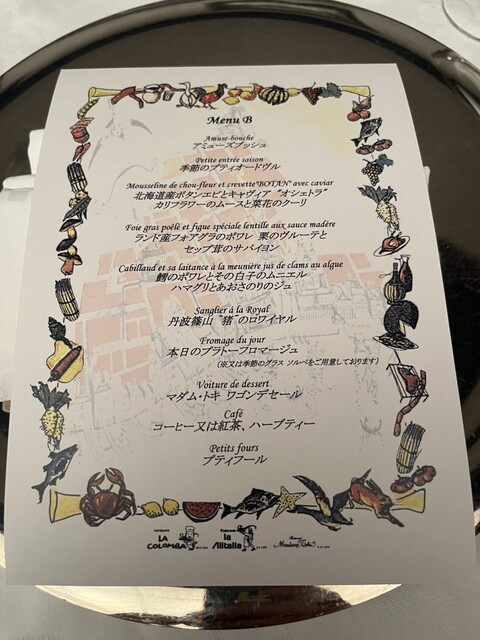 Menu B
Amuse-bouche
アミューズブッシュ
Petite entrée saison
季節のプティオードヴル
Mousseline de chou-fleur et crevette"BOTAN" avec caviar
北海道産ボタンエビとキャヴィア "オシェトラ"
カリフラワーのムースと菜花のクーリ
Foie gras poêlé et figue spéciale lentille aux sauce madère
ランド産フォアグラのポワレ 栗のヴルーテと
セップ茸のサバイヨン
Cabillaud et sa laitance à la meunière jus de clams au algue
鱈のポワレとその白子のムニエル
ハマグリとあおさのりのジュ
Sanglier à la Royal
丹波篠山 "猪" のロワイヤル
Fromage du jour
本日のプラトーフロマージュ
(※又は季節のグラス ソルベをご用意しております)
Voiture de dessert
マダム・トキ ワゴンデセール
Café
コーヒー又は紅茶、ハーブティー
Petits fours
プティフール
LA COLOMBA
la Alitalia
Madame Toki